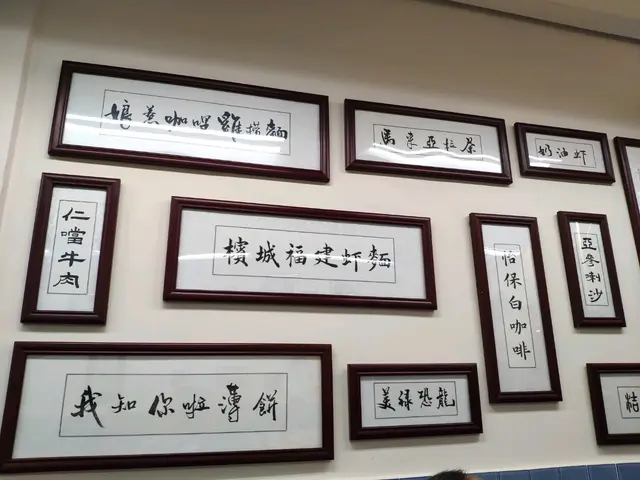 娘惹咖哩雞撈麵
馬來亞拉茶
奶油虾
仁噹牛肉
檳城福建虾麵
怡保白咖啡
亞參喇沙
我知你啦薄餅
美禄恐龍